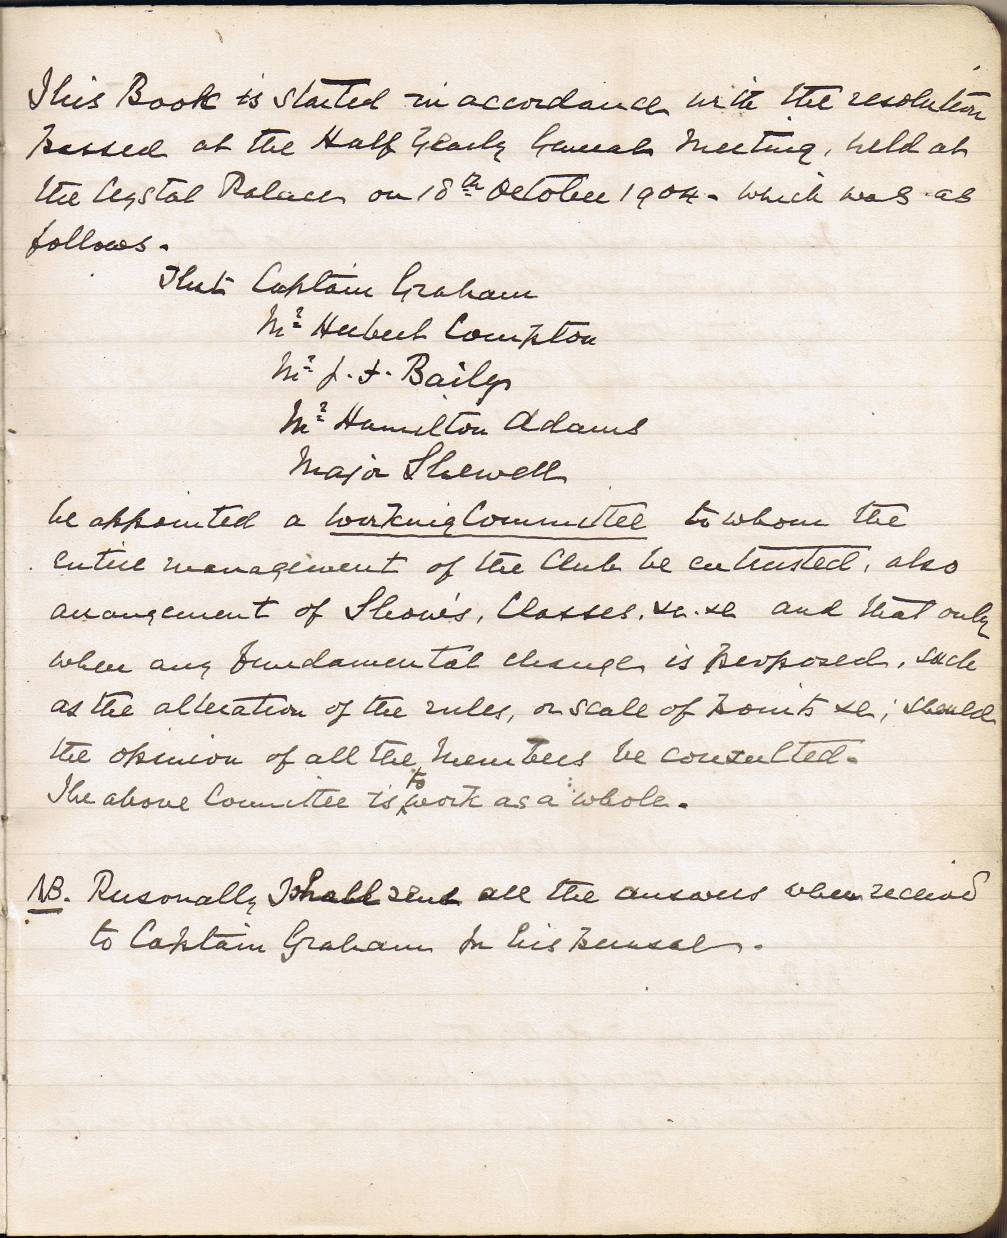 This Book is started in accordance with the resolution
passed at the Half Yearly General Meeting, held at
the Crystal Palace on 18th October 1904 - which was as
follows -
That Captain Graham
Mr Hubert Compton
Mr J. F. Baily
Mr Hamilton Adams
Major Shewell
be appointed a working Committee to whom the
entire management of the Club be entrusted, also
arrangement of Shows, Classes, &c. &c and that only
when any fundamental change is proposed, such
as the alteration of the rules, or scale of points &c; should
the opinion of all the Members be consulted -
The above Committee is to work as a whole -
NB. Personally I shall send all the answers when received
to Captain Graham for his perusal -